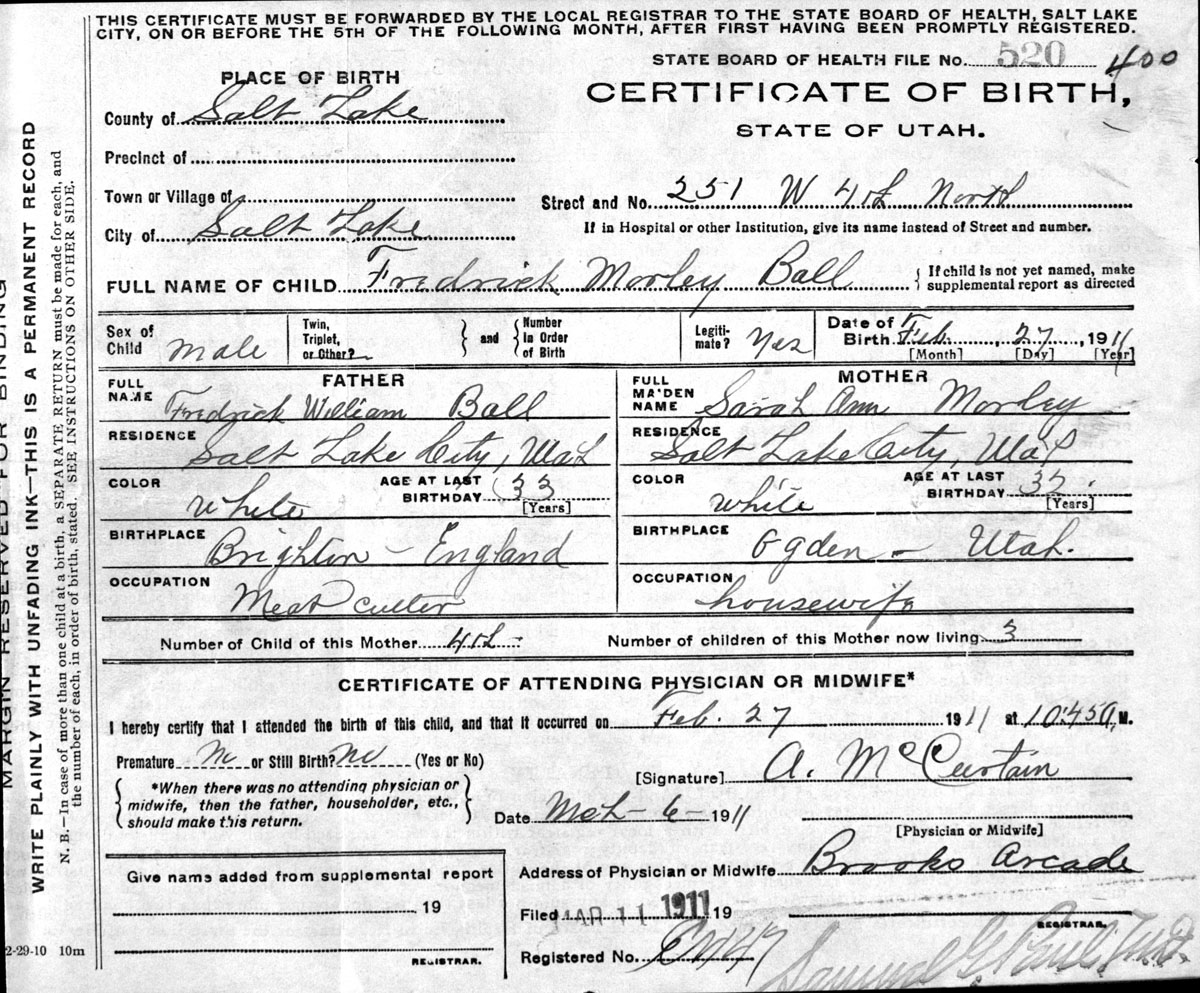 THIS CERTIFICATE MUST BE FORWARDED BY THE LOCAL REGISTRAR TO THE STATE BOARD OF HEALTH, SALT LAKE
CITY, ON OR BEFORE THE 5TH OF THE FOLLOWING MONTH, AFTER FIRST HAVING BEEN PROMPTLY REGISTERED.
STATE BOARD OF HEALTH FILE No. 520 400
PLACE OF BIRTH
CERTIFICATE OF BIRTH,
STATE OF UTAH.
County of Salt Lake
Precinct of
Town or Village of
Street and No. 251 W 4th North
City of Salt Lake
If in Hospital or other Institution, give its name instead of Street and number.
FULL NAME OF CHILD Fredrick Morley Ball
{ If child is not yet named, make
supplemental report as directed
Sex of Child Male
Twin, Triplet, or Other? } and { Number in Order of Birth
Legitimate? Yes
Date of Birth Feb. 27, 1911
[Month] [Day] [Year]
FATHER
FULL NAME Fredrick William Ball
RESIDENCE Salt Lake City, Utah
COLOR White AGE AT LAST BIRTHDAY 33 [Years]
BIRTHPLACE Brighton - England
OCCUPATION Meat cutter
MOTHER
FULL MAIDEN NAME Sarah Ann Morley
RESIDENCE Salt Lake City, Utah
COLOR White AGE AT LAST BIRTHDAY 32. [Years]
BIRTHPLACE Ogden - Utah.
OCCUPATION housewife
Number of Child of this Mother 4th - Number of children of this Mother now living 3
CERTIFICATE OF ATTENDING PHYSICIAN OR MIDWIFE*
I hereby certify that I attended the birth of this child, and that it occurred on Feb. 27 1911 at 10:45 a, M.
Premature No or Still Birth? No (Yes or No)
[Signature] A. McCurtain
{ *When there was no attending physician or
midwife, then the father, householder, etc.,
should make this return. }
Date Mch - 6 - 1911
[Physician or Midwife]
Give name added from supplemental report
Address of Physician or Midwife Brooks Arcade
19
Filed MAR 11 1911 19
REGISTRAR.
Registered No.
REGISTRAR.
2-29-10 10m
MARGIN RESERVED FOR BINDING
WRITE PLAINLY WITH UNFADING INK—THIS IS A PERMANENT RECORD
N. B.—In case of more than one child at a birth, a SEPARATE RETURN must be made for each, and
the number of each, in order of birth, stated. SEE INSTRUCTIONS ON OTHER SIDE.